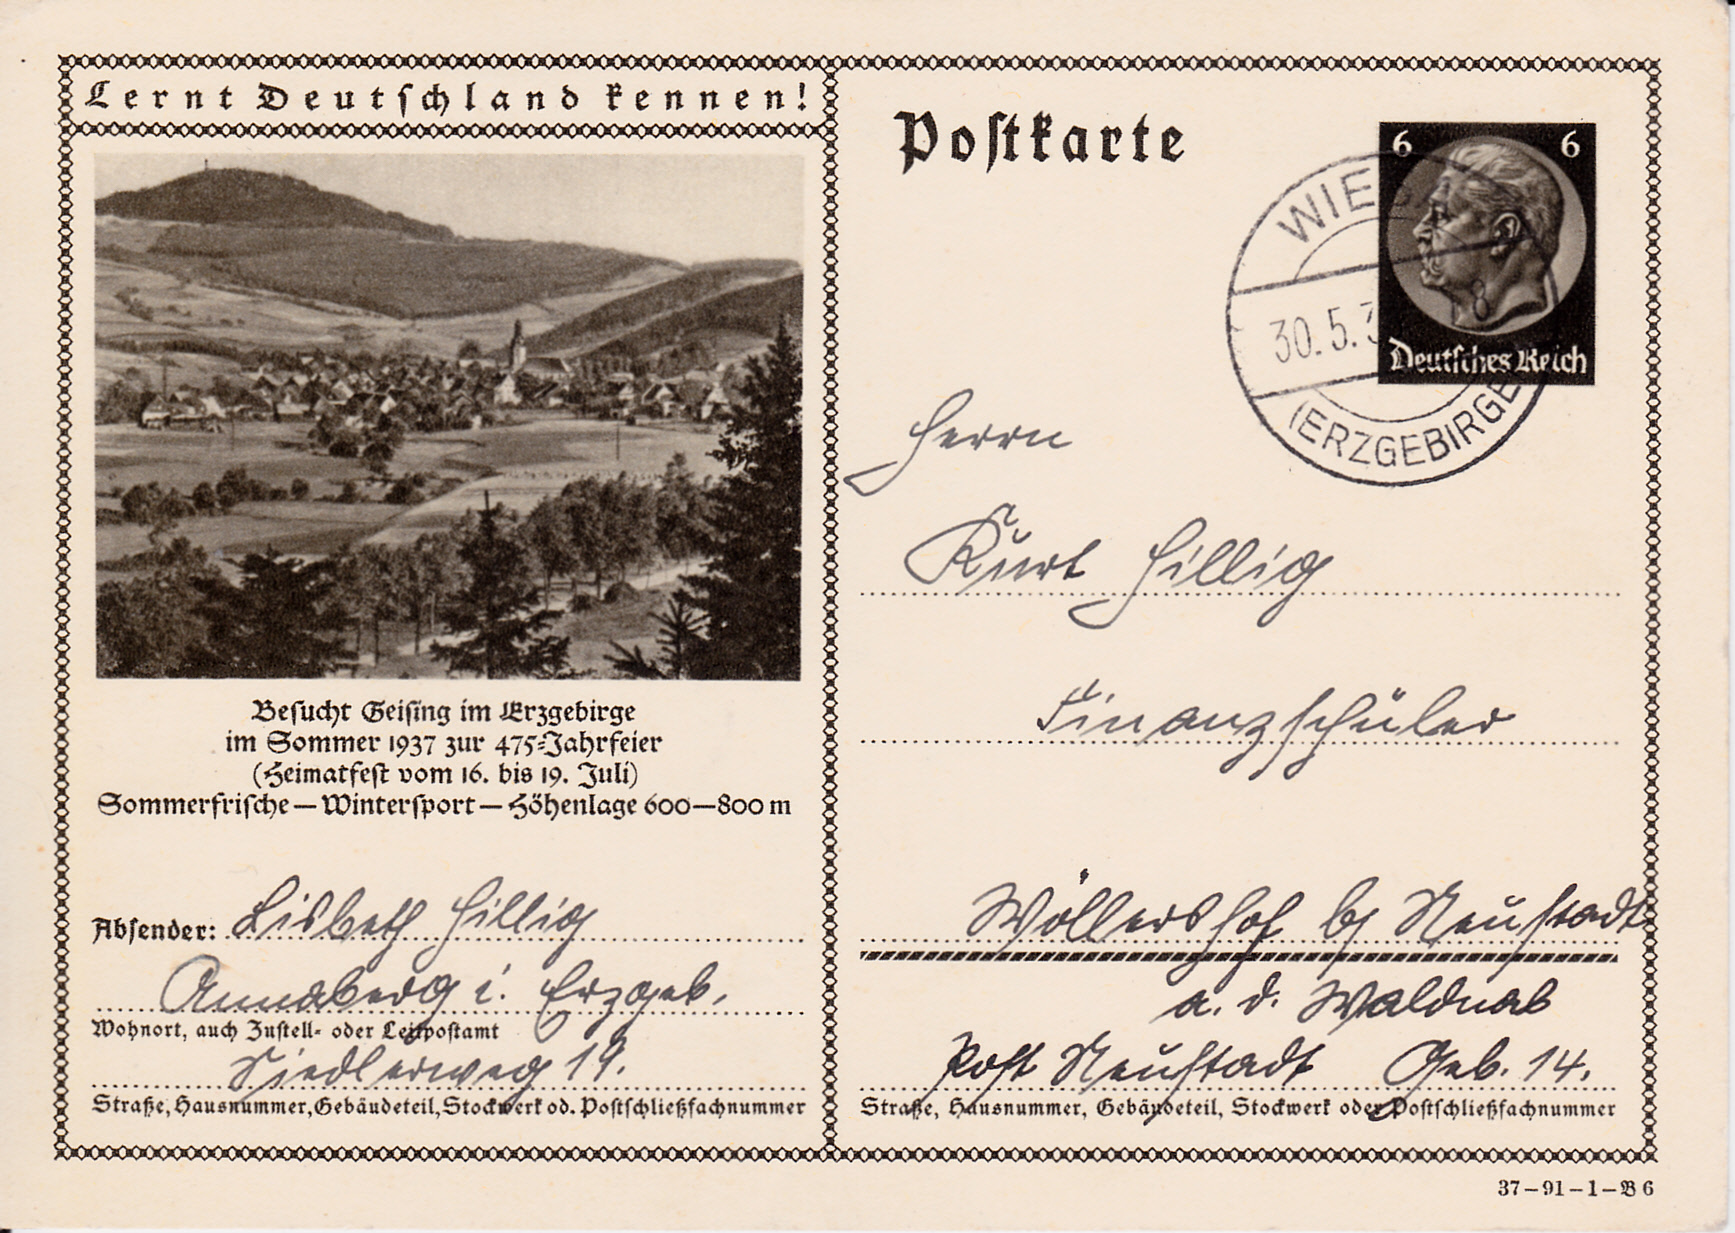 Lernt Deutschland kennen!
Besucht Geising im Erzgebirge
im Sommer 1937 zur 475-Jahrfeier
(Heimatfest vom 16. bis 19. Juli)
Sommerfrische — Wintersport — Höhenlage 600—800 m
Absender: Lisbeth Hillig
Annaberg i. Erzgeb.
Wohnort, auch Zustell- oder Leitpostamt
Siedlerweg 19.
Straße, Hausnummer, Gebäudeteil, Stockwerk od. Postschließfachnummer
Postkarte
6 6
Deutsches Reich
WIES
30.5.3
(ERZGEBIRGE
Herrn
Kurt Hillig
Finanzschüler
Wöllershof b/ Neustadt
a. d. Waldnab
Post Neustadt Geb. 14.
Straße, Hausnummer, Gebäudeteil, Stockwerk oder Postschließfachnummer
37–91–1–B 6